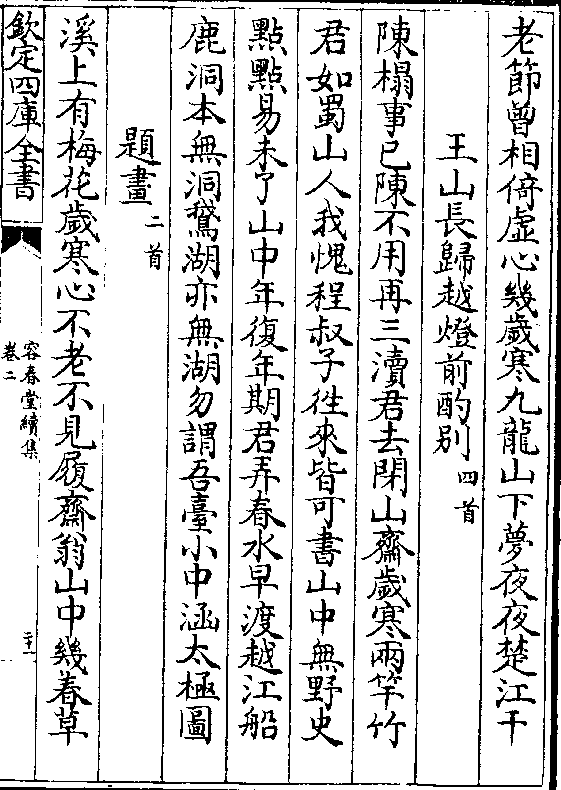 老節曾相倚虛心幾歲寒九龍山下夢夜夜楚江干
王山長歸越燈前酌别四首
陳榻事已陳不用再三瀆君去閉山齋歲寒兩竿竹
君如蜀山人我愧程叔子徃來皆可書山中無野史
點點易未了山中年復年期君弄春水早渡越江船
鹿洞本無洞鵞湖亦無湖勿謂吾臺小中涵太極圖
題畫二首
溪上有梅花歲寒心不老不見履齋翁山中幾春草
欽定四庫全書
容春堂續集
卷二
二十一